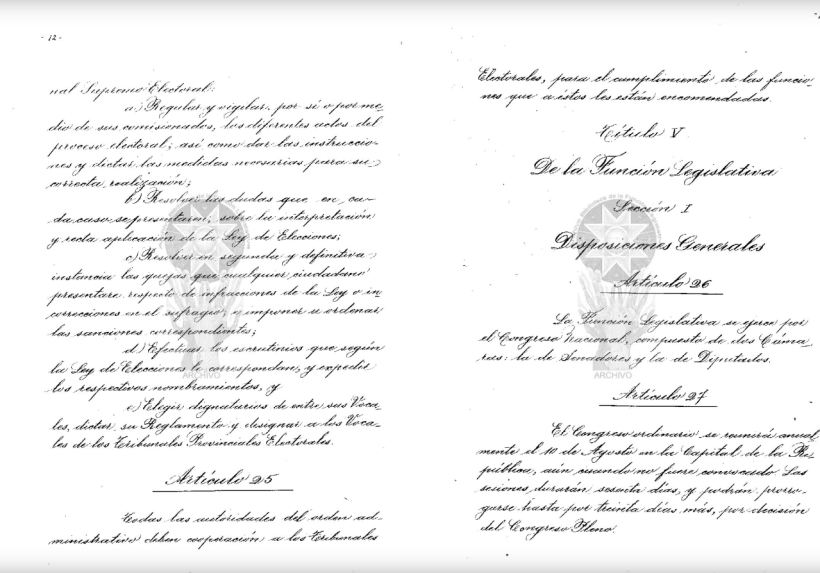 - 12 -
nal Supremo Electoral:
a) Regular y vigilar, por sí o por me-
dio de sus comisionados, los diferentes actos del
proceso electoral; así como dar las instruccio-
nes y dictar las medidas necesarias para su
correcta realización;
b) Resolver las dudas que en ca-
da caso se presentaren, sobre la interpretación
y recta aplicación de la Ley de Elecciones;
c) Resolver en segunda y definitiva
instancia las quejas que cualquier ciudadano
presentare respecto de infracciones de la Ley o in
correcciones en el sufragio, e imponer u ordenar
las sanciones correspondientes;
d) Efectuar los escrutinios que según
la Ley de Elecciones le correspondan, y expedir
los respectivos nombramientos, y
e) Elegir dignatarios de entre sus Voca-
les, dictar su Reglamento y designar a los Voca-
les de los Tribunales Provinciales Electorales.
Artículo 25
Todas las autoridades del orden ad-
ministrativo deben cooperación a los Tribunales
ARCHIVO
Electorales, para el cumplimiento de las funcio-
nes que a éstos les están encomendadas.
Título V
De la Función Legislativa
Sección I
Disposiciones Generales
Artículo 26
La Función Legislativa se ejerce por
el Congreso Nacional, compuesto de dos Cáma-
ras: la de Senadores y la de Diputados.
ARCHIVO
Artículo 27
El Congreso ordinario se reunirá anual
mente el 10 de Agosto en la Capital de la Re-
pública, aún cuando no fuere convocado. Las
sesiones durarán sesenta días, y podrán prorro-
garse hasta por treinta días más, por decisión
del Congreso Pleno.